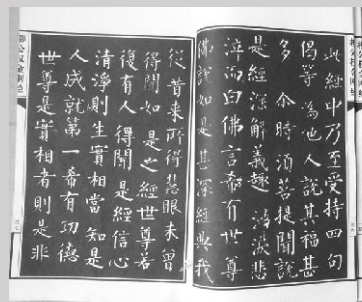 此經中乃至受持四句
偈等為他人說其福甚
多 尒時須菩提聞說
是經深解義趣 涕淚悲
泣而白佛言希有世尊
佛說如是甚深經典我
從昔來所得慧眼未曾
得聞如是之經世尊若
復有人得聞是經信心
清淨則生實相當知是
人成就第一希有功德
世尊是實相者則是非